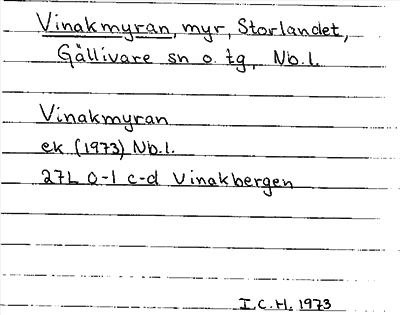 Vinakmyran, myr, Storlandet,
Gällivare sn o. tg, Nb.l.
Vinakmyran
ek (1973) Nb.l.
27L 0-1 c-d Vinakbergen
I.C.H. 1973